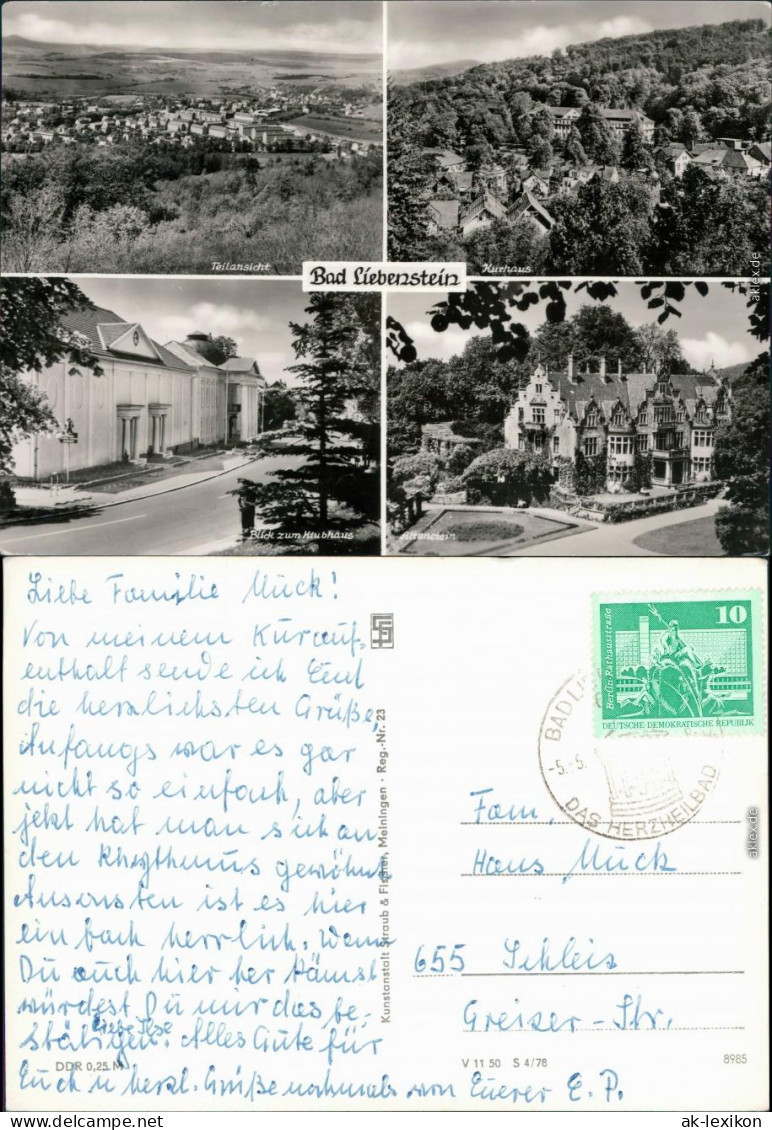 Teilansicht
Bad Liebenstein
Kurhaus
Blick zum Klubhaus
Altenstein
aklex.de
Liebe Familie Mück!
Von meinem Kurauf-
enthalt sende ich Euch
die herzlichsten Grüße,
Anfangs war es gar
nicht so einfach, aber
jetzt hat man sich an
den Rhythmus gewöhnt
Ansonsten ist es hier
einfach herrlich. Wenn
Du auch hier her kämst
würdest Du mir das be-
Liebe Ilse
stätigen. Alles Gute für
Euch u herzl. Grüße nochmals von Euerer E. P.
DDR 0,25 M
Kunstanstalt Straub & Fischer, Meiningen · Reg.-Nr. 23
10
Berlin · Rathausstraße
DEUTSCHE DEMOKRATISCHE REPUBLIK
BAD LIE
-5.-5.
DAS HERZHEILBAD
Fam.
Hans Mück
655 Schleiz
Greizer-Str.
V 11 50 S 4/78
8985
aklex.de
www.ak-lexikon